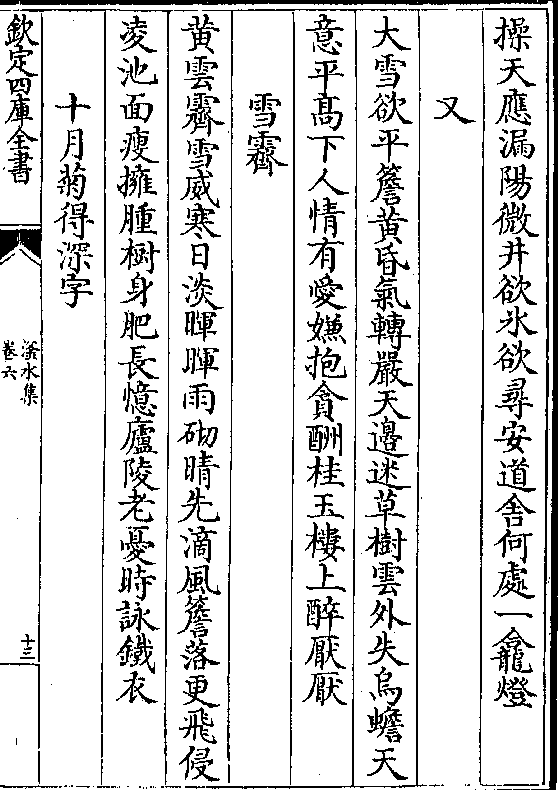 操天應漏陽微井欲氷欲尋安道舎何處一龕燈
又
大雪欲平簷黄昏氣轉嚴天邉迷草樹雲外失烏蟾天
意平髙下人情有愛嫌抱貪酬桂玉樓上醉厭厭
雪霽
黄雲霽雪威寒日淡暉暉雨砌晴先滴風簷落更飛侵
凌池面瘦擁腫樹身肥長憶廬陵老憂時詠鐵衣
十月菊得深字
欽定四庫全書
滏水集
卷六
十三